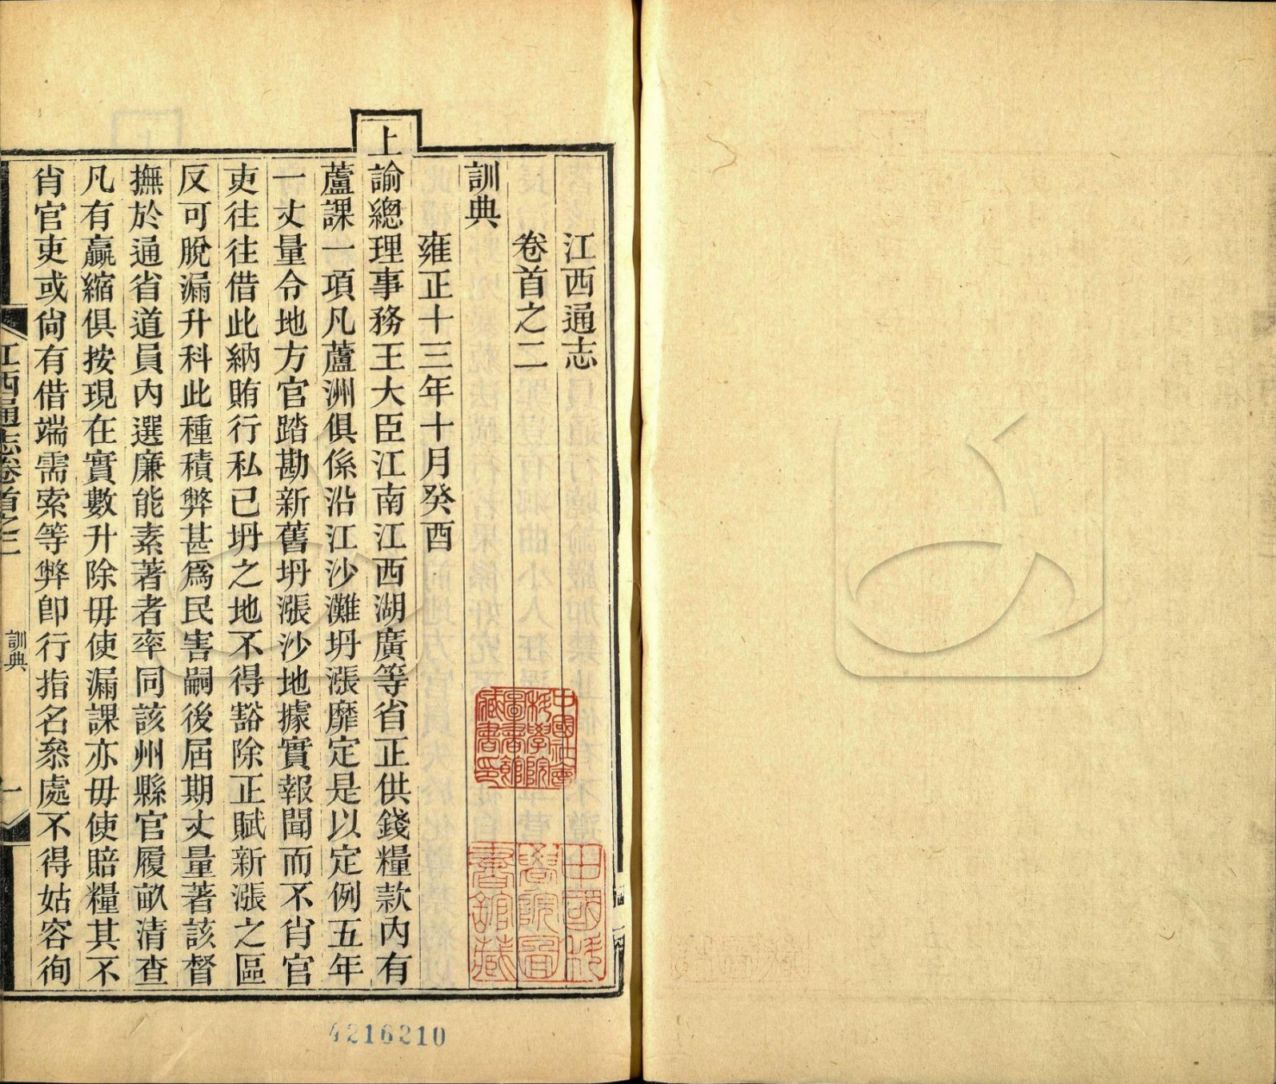 江西通志
卷首之二
訓典
雍正十三年十月癸酉
上諭總理事務王大臣江南江西湖廣等省正供錢糧款內有
蘆課一項凡蘆洲俱係沿江沙灘坍漲靡定是以定例五年
一丈量令地方官踏勘新舊坍漲沙地據實報聞而不肖官
吏往往借此納賄行私已坍之地不得豁除正賦新漲之區
反可脫漏升科此種積弊甚爲民害嗣後屆期丈量著該督
撫於通省道員內選廉能素著者率同該州縣官履畝清查
凡有贏縮俱按現在實數升除毋使漏課亦毋使賠糧其不
肖官吏或尙有借端需索等弊卽行指名叅處不得姑容徇
江西通志卷首之二
訓典
一
中國社會
科學院
圖書館
藏書印
中國科
學院圖
書館藏
4216210